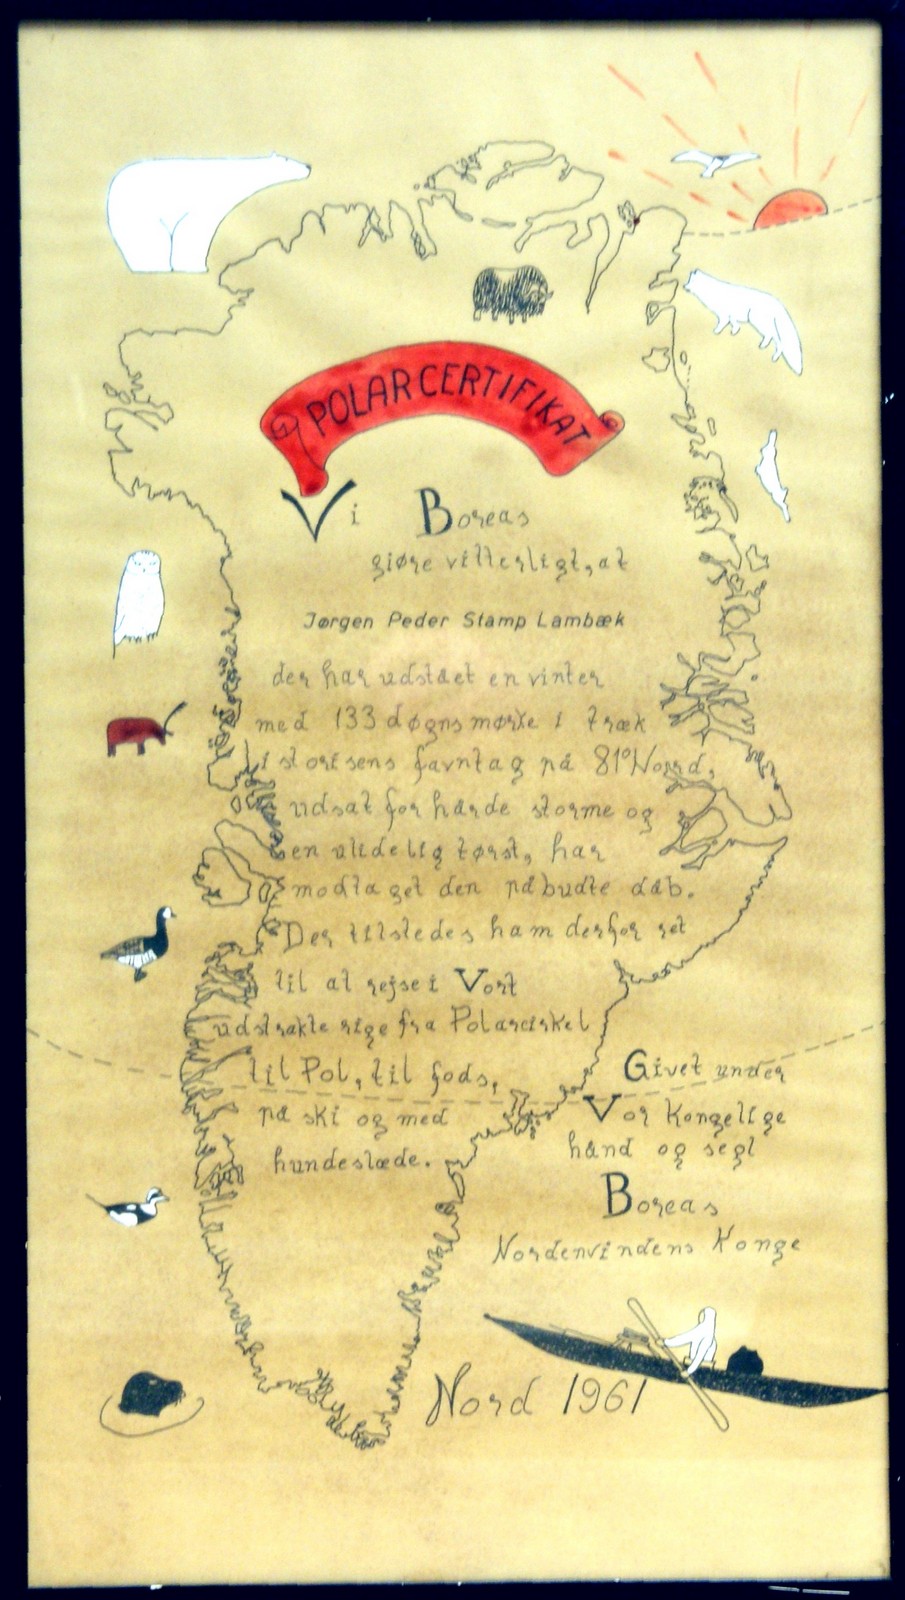 POLARCERTIFIKAT
Vi Boreas
giøre vitterligt, at
Jørgen Peder Stamp Lambæk
der har udstået en vinter
med 133 døgns mørke i træk
i storisens favntag på 81° Nord,
udsat for hårde storme og
en ulidelig tørst, har
modtaget den påbudte dåb.
Der tilstedes ham derfor ret
til at rejse i Vort
udstrakte rige fra Polarcirkel
til Pol, til fods,
på ski og med
hundeslæde.
Givet under
Vor Kongelige
hånd og segl
Boreas
Nordenvindens Konge
Nord 1961